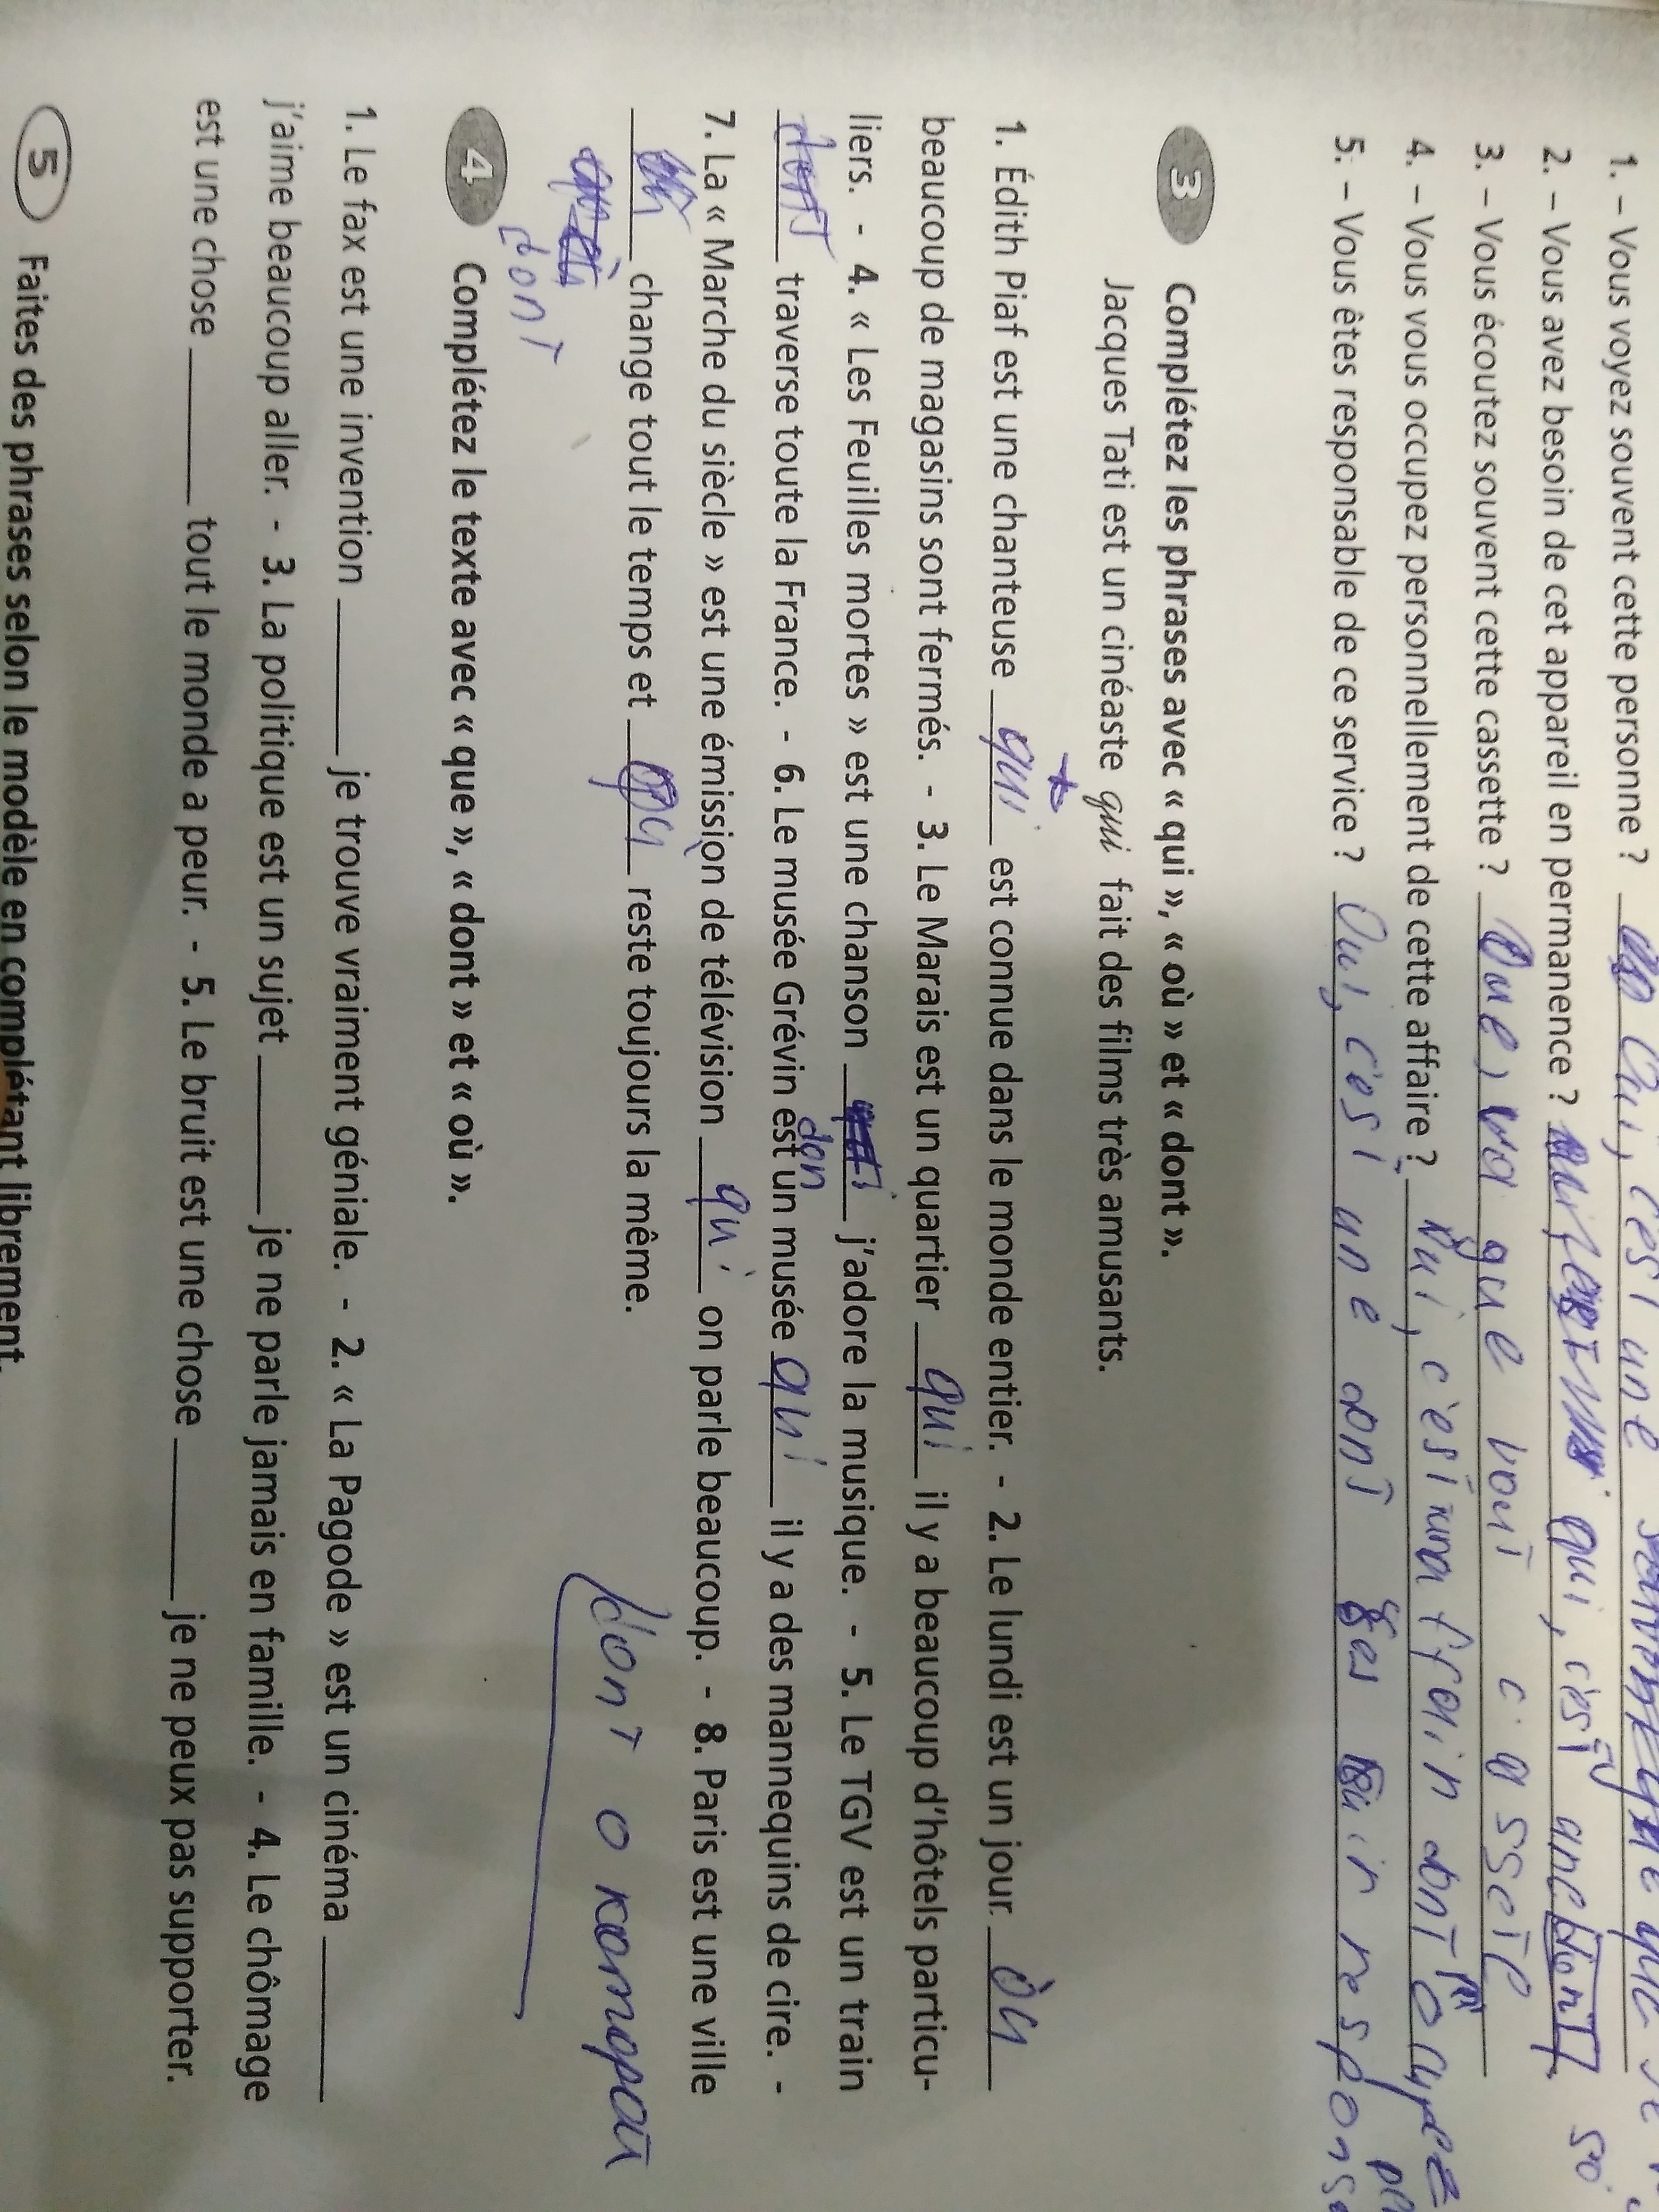 1. – Vous voyez souvent cette personne ? Oui, c'est une
2. – Vous avez besoin de cet appareil en permanence ? qui, c'est une dont
3. – Vous écoutez souvent cette cassette ? que c a ssete
4. – Vous vous occupez personnellement de cette affaire ? Oui, c'est dont
5. – Vous êtes responsable de ce service ? Oui, c'est une dont
3 Complétez les phrases avec « qui », « où » et « dont ».
Jacques Tati est un cinéaste qui fait des films très amusants.
1. Édith Piaf est une chanteuse qui est connue dans le monde entier. - 2. Le lundi est un jour où
beaucoup de magasins sont fermés. - 3. Le Marais est un quartier qui il y a beaucoup d'hôtels particu-
liers. - 4. « Les Feuilles mortes » est une chanson j'adore la musique. - 5. Le TGV est un train
don
dont traverse toute la France. - 6. Le musée Grévin est un musée qui il y a des mannequins de cire. -
7. La « Marche du siècle » est une émission de télévision qui on parle beaucoup. - 8. Paris est une ville
change tout le temps et reste toujours la même.
dont о которой
dont
4 Complétez le texte avec « que », « dont » et « où ».
1. Le fax est une invention ______ je trouve vraiment géniale. - 2. « La Pagode » est un cinéma ______
j'aime beaucoup aller. - 3. La politique est un sujet ______ je ne parle jamais en famille. - 4. Le chômage
est une chose ______ tout le monde a peur. - 5. Le bruit est une chose ______ je ne peux pas supporter.
5 Faites des phrases selon le modèle en complétant librement.